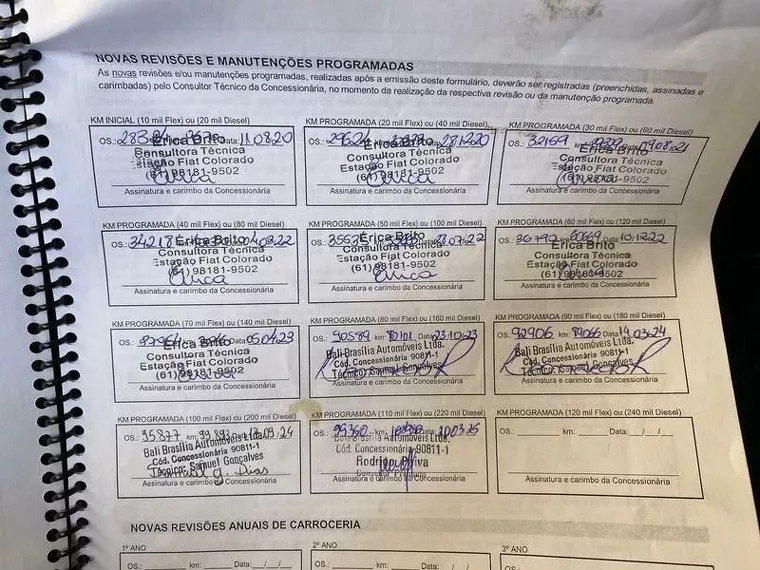 NOVAS REVISÕES E MANUTENÇÕES PROGRAMADAS
As novas revisões e/ou manutenções programadas, realizadas após a emissão deste formulário, deverão ser registradas (preenchidas, assinadas e
carimbadas) pelo Consultor Técnico da Concessionária, no momento da realização da respectiva revisão ou da manutenção programada.
KM INICIAL (10 mil Flex) ou (20 mil Diesel)
OS.: Data: 11.08.20
Erica Brito
Consultora Técnica
Estação Fiat Colorado
(61) 98181-9502
Assinatura e carimbo da Concessionária
KM PROGRAMADA (20 mil Flex) ou (40 mil Diesel)
OS.: 28.12.20
Erica Brito
Consultora Técnica
Estação Fiat Colorado
(61) 98181-9502
Assinatura e carimbo da Concessionária
KM PROGRAMADA (30 mil Flex) ou (60 mil Diesel)
OS.: 32159
Erica Brito
Consultora Técnica
Estação Fiat Colorado
(61) 98181-9502
Assinatura e carimbo da Concessionária
KM PROGRAMADA (40 mil Flex) ou (80 mil Diesel)
OS.: 34218
Erica Brito
Consultora Técnica
Estação Fiat Colorado
(61) 98181-9502
Erica
Assinatura e carimbo da Concessionária
KM PROGRAMADA (50 mil Flex) ou (100 mil Diesel)
OS.:
Erica Brito
Consultora Técnica
Estação Fiat Colorado
(61) 98181-9502
Erica
Assinatura e carimbo da Concessionária
KM PROGRAMADA (60 mil Flex) ou (120 mil Diesel)
OS.: 36792 km: 60669 10.12.22
Erica Brito
Consultora Técnica
Estação Fiat Colorado
(61) 98181-9502
Assinatura e carimbo da Concessionária
KM PROGRAMADA (70 mil Flex) ou (140 mil Diesel)
OS.: Data: 05.04.23
Erica Brito
Consultora Técnica
Estação Fiat Colorado
(61) 98181-9502
Assinatura e carimbo da Concessionária
KM PROGRAMADA (80 mil Flex) ou (160 mil Diesel)
OS.: 90589 km: 80101 Data: 23.10.23
Bali Brasília Automóveis Ltda.
Cód. Concessionária 90811-1
Técnico: Samuel Gonçalves
Assinatura e carimbo da Concessionária
KM PROGRAMADA (90 mil Flex) ou (180 mil Diesel)
OS.: 92906 km: 89066 Data: 14.03.24
Bali Brasília Automóveis Ltda.
Cód. Concessionária 90811-1
Técnico: Samuel Gonçalves
Assinatura e carimbo da Concessionária
KM PROGRAMADA (100 mil Flex) ou (200 mil Diesel)
OS.: 95877 km: 99.893
Bali Brasília Automóveis Ltda.
Cód. Concessionária 90811-1
Técnico: Samuel Gonçalves
Assinatura e carimbo da Concessionária
KM PROGRAMADA (110 mil Flex) ou (220 mil Diesel)
OS.: 99360 km: Data: 20.03.25
Bali Brasília Automóveis Ltda.
Cód. Concessionária 90811-1
Assinatura e carimbo da Concessionária
KM PROGRAMADA (120 mil Flex) ou (240 mil Diesel)
OS.: km: Data: / /
Assinatura e carimbo da Concessionária
NOVAS REVISÕES ANUAIS DE CARROCERIA
1º ANO
OS.: km: Data: / /
2º ANO
OS.: km: Data: / /
3º ANO
OS.: km: Data: / /